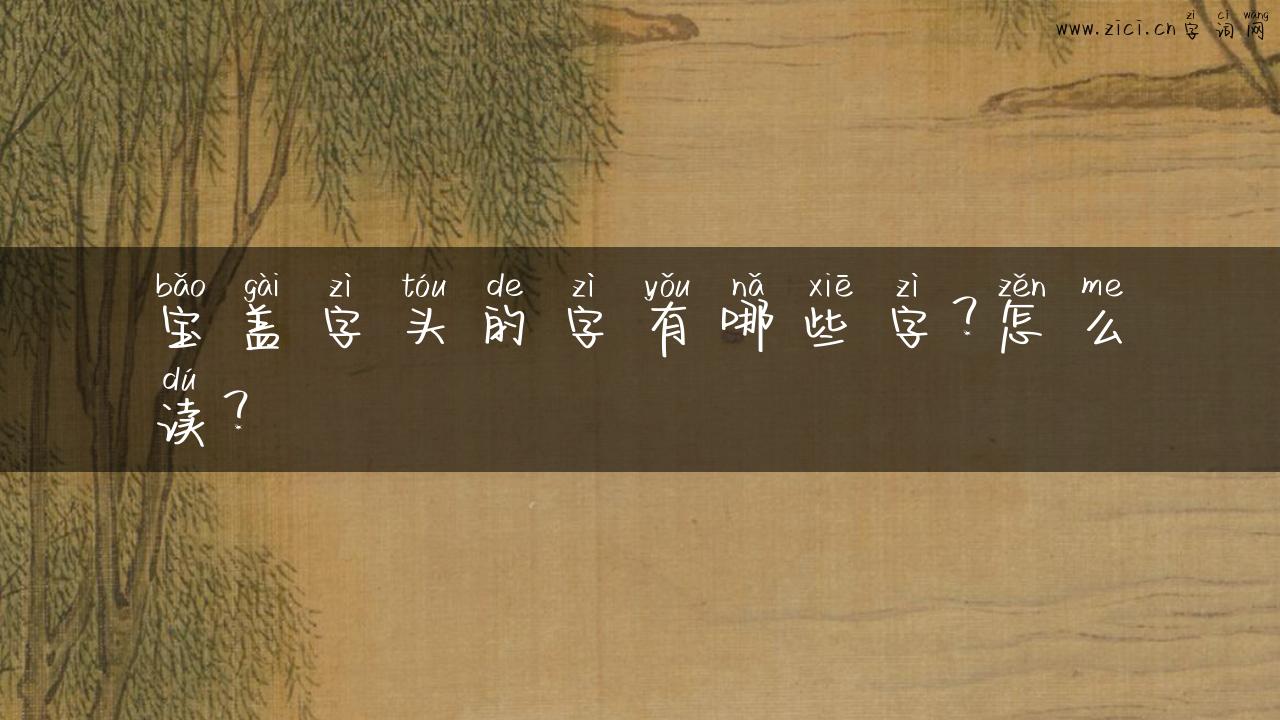 zì cí wǎng
www.zici.cn字词网
bǎo gài zì tóu de zì yǒu nǎ xiē zì zěn me
宝盖字头的字有哪些字？怎么
dú
读？